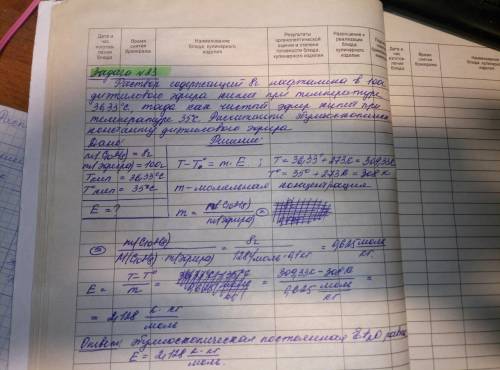 Дата и час изготовления блюда
Время снятия бракеража
Наименование блюда, кулинарного изделия
Результаты органолептической оценки и степени готовности блюда, кулинарного изделия
Разрешение к реализации блюда, кулинарного изделия
Дата и час изготовления блюда
Время снятия бракеража
Наименование блюда
Задача №23
Раствор содержащий 8г нафталина в 100г
диэтилового эфира кипит при температуре
36,33°С, тогда как чистый эфир кипит при
температуре 35°С. Рассчитайте эбулиоскопическ
константу диэтилового эфира.
Дано: Решение:
m(C10H8) = 8г
m(эфира) = 100г
Tкип = 36,33°С
T°кип = 35°С
E = ?
T - T° = m · E ; T = 36,33° + 273,0 = 309,33К
T° = 35° + 273,0 = 308К
m - моляльная концентрация
m = n(C10H8) / m(эфира) =
= m(C10H8) / M(C10H8) · m(эфира) = 8г / 128г/моль · 0,1кг = 0,625 моль/кг
E = T - T° / m = = 309,33К - 308К / 0,625 моль/кг =
= 2,128 К · кг / моль
Ответ: Эбулиоскопическая постоянная Et2O равна
E = 2,128 К · кг / моль.